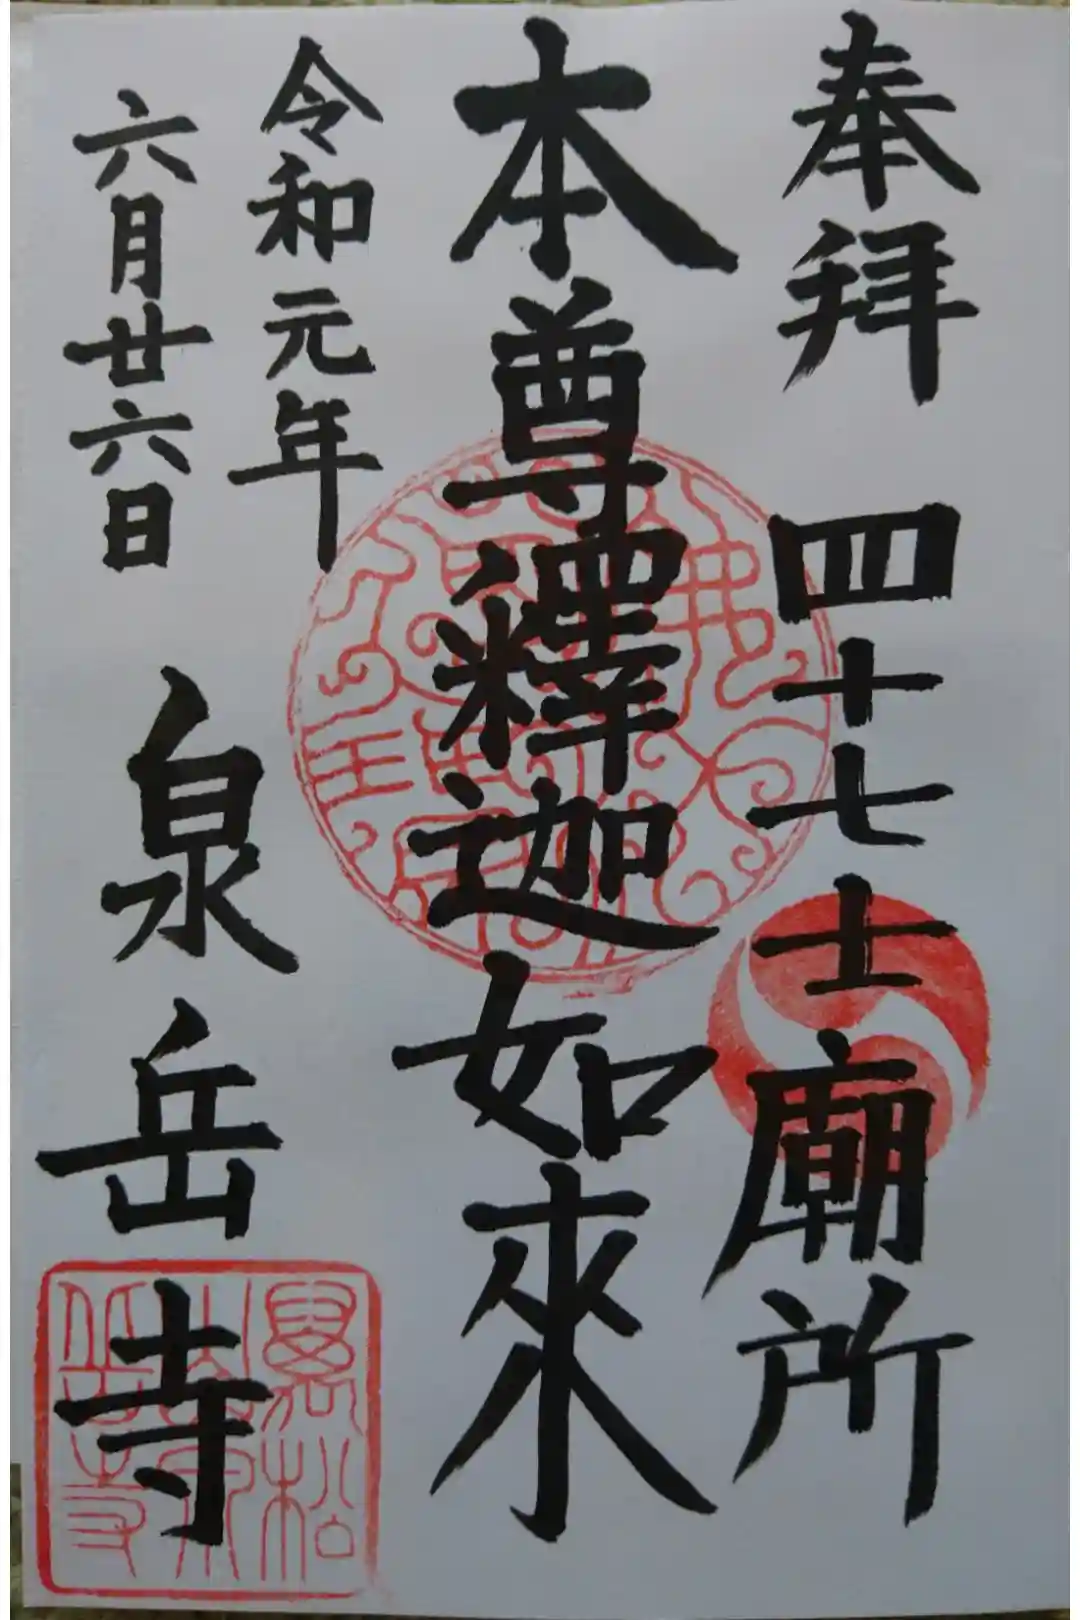 奉拝 四十七士廟所
本尊釋迦如來
令和元年
六月廿六日
泉岳寺
萬松
泉岳寺